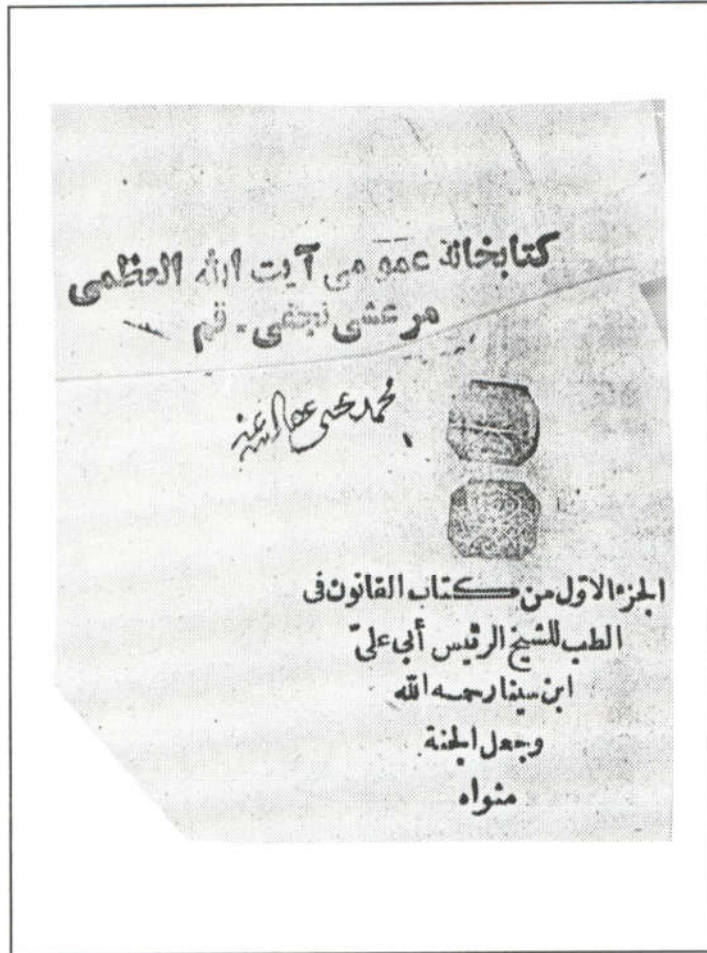 كتابخانه عمومى آيت الله العظمى
مرعشى نجفى - قم
محمد عفى الله عنه
الجزء الاوّل من كتاب القانون فى
الطب للشيخ الرئيس أبى علىّ
ابن سينا رحمه الله
وجعل الجنة
مثواه